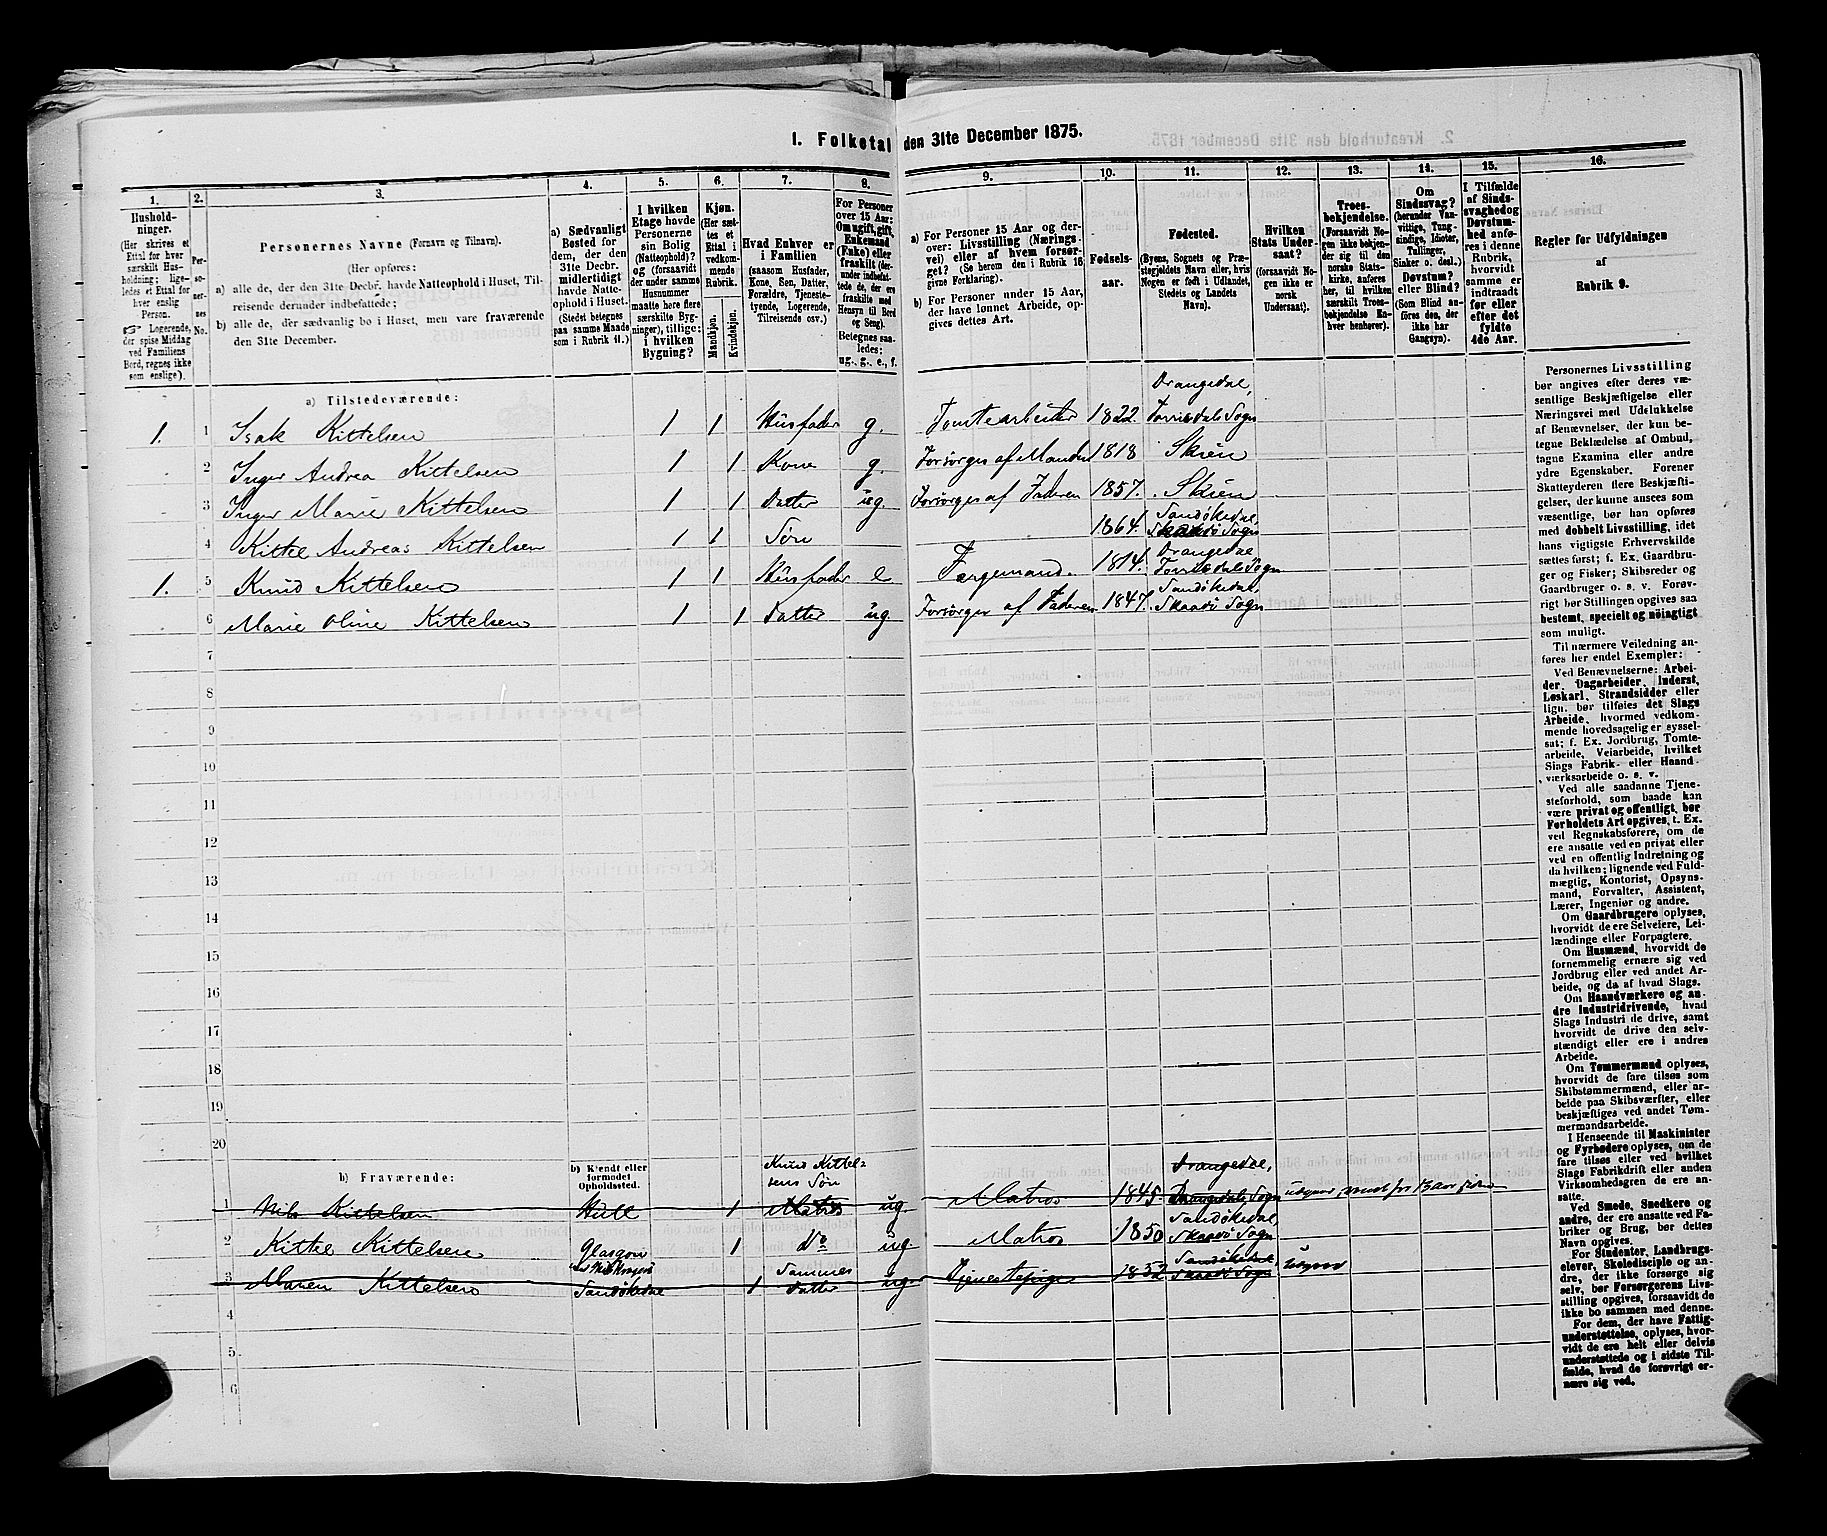 1. Folketal den 31te December 1875.
1.
2.
3.
4.
5.
6.
7.
8.
9.
10.
11.
12.
13.
14.
15.
16.
Hushold-
ninger.
(Her skrives et
Ettal for hver
særskilt Hus-
holdning; lige-
ledes et Ettal for
hver enslig
Person.
☞ Logerende,
der spise Middag
ved Familiens
Bord, regnes ikke
som enslige).
Per-
so-
ner-
nes
No.
Personernes Navne (Fornavn og Tilnavn).
(Her opføres:
a) alle de, der den 31te Decbr. havde Natteophold i Huset, Til-
reisende derunder indbefattede;
b) alle de, der sædvanlig bo i Huset, men vare fraværende
den 31te December.
a) Sædvanligt
Bosted for
dem, der den
31te Decbr.
midlertidigt
havde Natte-
ophold i Huset.
(Stedet betegnes
paa samme Maade
som i Rubrik 11.)
I hvilken
Etage havde
Personerne
sin Bolig
(Natteophold)?
og (forsaavidt
der under samme
Husnummer
maatte høre flere
særskilte Byg-
ninger), tillige:
i hvilken
Bygning?
Kjøn.
(Her sæt-
tes et
Ettal i
vedkom-
mende
Rubrik.
Mandkjøn.
Kvindekjøn.
Hvad Enhver er
i Familien
(saasom Husfader,
Kone, Søn, Datter,
Forældre, Tjeneste-
tyende, Logerende,
Tilreisende osv.)
For Personer
over 15 Aar:
Om ugift, gift,
Enkemand
(Enke) eller
fraskilt (der-
under indbefat-
tede de, der ere
fraskilte med
Hensyn til Bord
og Seng).
Betegnes saa-
ledes:
ug., g., e., f.
a) For Personer 15 Aar og der-
over: Livsstilling (Nærings-
vei) eller af hvem forsør-
get? (Se herom den i Rubrik 16
givne Forklaring).
b) For Personer under 15 Aar,
der have lønnet Arbeide, op-
gives dettes Art.
Fødsels-
aar.
Fødested.
(Byens, Sognets og Præ-
stegjeldets Navn eller, hvis
Nogen er født i Udlandet,
Stedets og Landets
Navn).
Hvilken
Stats Under-
saat?
(forsaavidt No-
gen ikke er
norsk
Undersaat).
Troes-
bekjendelse.
(Forsaavidt No-
gen ikke bekjen-
der sig til den
norske Stats-
kirke, anføres
her, til hvilken
særskilt Troes-
bekjendelse En-
hver henhører).
Om
Sindssvag?
(herunder Van-
vittige, Tung-
sindige, Idioter,
Tullinger,
Sinker o. desl.)
Døvstum?
eller Blind?
(Som Blind an-
føres den, der
ikke har
Gangsyn).
I Tilfælde
af Sinds-
svaghed og
Døvstum-
hed anfø-
res i denne
Rubrik,
hvorvidt
samme er
indtraadt
før eller
efter det
fyldte
4de Aar.
Regler for Udfyldningen
af
Rubrik 9.
a) Tilstedeværende:
1. 1 Isak Kittelsen 1 1 Husfader g. Tomtearbeider 1822. Drangedal, Tørrisdals Sogn
2 Inger Andrea Kittelsen 1 1 Kone g. Forsørges af Manden 1818 Skien
3 Inger Marie Kittelsen 1 1 Datter ug. Forsørges af Faderen 1857. Skien
4 Kittel Andreas Kittelsen 1 1 Søn 1864. Sandøkedal, Skaadø Sogn
1. 5 Knud Kittelsen 1 1 Husfader e Færgemand. 1814. Drangedal Tørrisdals Sogn
6 Marie Oline Kittelsen 1 1 Datter ug. Forsørges af Faderen 1847. Sandøkedal, Skaadø Sogn
7
8
9
10
11
12
13
14
15
16
17
18
19
20
b) Fraværende:
b) Kjendt eller
formodet
Opholdssted.
1 Nils Kittelsen Hull 1 Knud Kittel-
sens Søn Matros ug. Matros 1845. Drangedal, Drangedals Sogn
2 Kittel Kittelsen Glasgow 1 Do ug. Matros 1850 Sandøkedal, Skaadø Sogn
3 Maren Kittelsen Sandøkedal 1 Sammes Datter ug. Tjenestepige 1852. Sandøkedal Skaadø Sogn
4
5
6
Personernes Livsstilling
bør angives efter deres væ-
sentlige Beskjæftigelse eller
Næringsvei med Udelukkelse
af Benævnelser, der kun be-
tegne Beklædelse af Ombud,
tagne Examina eller andre
ydre Egenskaber. Forener
Skatteyderen flere Beskjæfti-
gelser, der kunne ansees som
væsentlige, bør han opføres
med dobbelt Livsstilling, idet
hans vigtigste Erhvervskilde
sættes først; f. Ex. Gaardbru-
ger og Fisker; Skibsreder og
Gaardbruger o. s. v. Forøv-
rigt bør Stillingen opgives saa
bestemt, specielt og nøiagtigt
som muligt.
Til nærmere Veiledning an-
føres her endel Exempler:
Ved Benævnelserne: Arbei-
der, Dagarbeider, Inderst,
Løskarl, Strandsidder eller
lign. bør tilføies det Slags
Arbeide, hvormed vedkom-
mende hovedsagelig er syssel-
sat; f. Ex. Jordbrug, Tomte-
arbeide, Veiarbeide, hvilket
Slags Fabrik- eller Haand-
værksarbeide o. s. v.
Ved alle saadanne Tjene-
steforhold, som baade kan
være privat og offentligt, bør
Forholdets Art opgives, t. Ex.
ved Regnskabsførere, om de
ere ansatte ved en privat eller
ved en offentlig Indretning og
da hvilken; lignende ved Fuld-
mægtig, Kontorist, Opsyns-
mand, Forvalter, Assistent,
Lærer, Ingeniør og andre.
Om Gaardbrugere oplyses,
hvorvidt de ere Selveiere, Lei-
lændinge eller Forpagtere.
Om Husmænd, hvorvidt de
fornemmelig ernære sig ved
Jordbrug eller ved andet Ar-
beide, og da af hvad Slags.
Om Haandværkere og an-
dre Industridrivende, hvad
Slags Industri de drive, samt
hvorvidt de drive den selv-
stændigt eller ere i andres
Arbeide.
Om Tømmermænd oplyses,
hvorvidt de fare tilsøs som
Skibstømmermænd, eller ar-
beide paa Skibsværfter, eller
beskjæftiges ved andet Tøm-
mermandsarbeide.
I Henseende til Maskinister
og Fyrbødere oplyses, om de
fare tilsøs eller ved hvilket
Slags Fabrikdrift eller anden
Virksomhedsgren de ere an-
satte.
Ved Smede, Snedkere og
andre, der ere ansatte ved Fa-
briker og Brug, bør dettes
Navn opgives.
For Studenter, Landbrugs-
elever, Skoledisciple og an-
dre, der ikke forsørge sig
selv, bør Forsørgerens Livs-
stilling opgives, forsaavidt de
ikke bo sammen med denne.
For dem, der have Fattig-
understøttelse, oplyses, hvor-
vidt de ere helt eller delvis
understøttede og i sidste Til-
fælde, hvad de forøvrigt er-
nære sig ved.